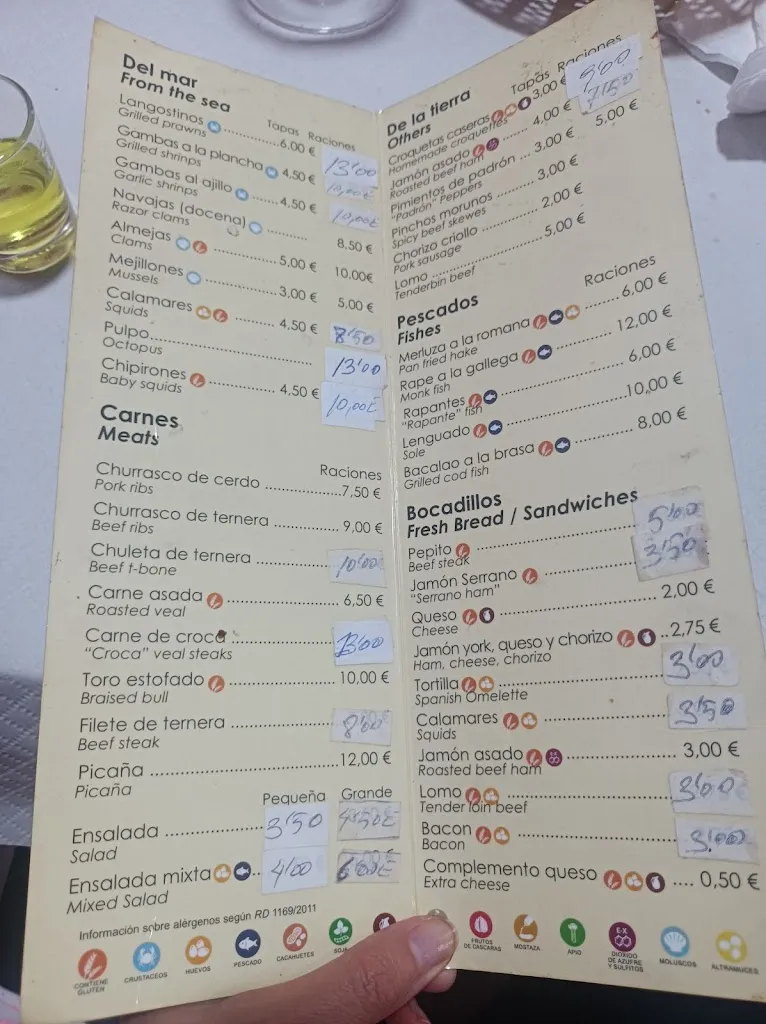 Del mar
From the sea
Tapas Raciones
Langostinos ........... 6,00 € 13'00
Grilled prawns
Gambas a la plancha 4,50 € 10,00€
Grilled shrinps
Gambas al ajillo ......... 4,50 € 10,00€
Garlic shrinps
Navajas (docena) .......... 8,50 €
Razor clams
Almejas ............ 5,00 € 10,00€
Clams
Mejillones ............ 3,00 € 5,00 €
Mussels
Calamares .......... 4,50 € 8'50
Squids
Pulpo........................... 13'00
Octopus
Chipirones ............ 4,50 € 10,00€
Baby squids
Carnes
Meats
Raciones
Churrasco de cerdo ..................7,50 €
Pork ribs
Churrasco de ternera ............... 9,00 €
Beef ribs
Chuleta de ternera ............... 10'00
Beef t-bone
Carne asada ..................... 6,50 €
Roasted veal
Carne de croca .................. 13'00
“Croca” veal steaks
Toro estofado ................... 10,00 €
Braised bull
Filete de ternera ................. 8'00
Beef steak
Picaña ..............................12,00 €
Picaña
Pequeña Grande
Ensalada ................ 3'50 4'50€
Salad
Ensalada mixta .. 4'00 6'00€
Mixed Salad
Información sobre alérgenos según RD 1169/2011
CONTIENE GLUTEN
CRUSTACEOS
HUEVOS
PESCADO
CACAHUETES
SOJA
De la tierra
Others
Tapas Raciones
Croquetas caseras 3,00 € 9'00
Homemade croquettes
Jamón asado ...... 4,00 € 7'50
Roasted beef ham
Pimientos de padrón ... 3,00 € 5,00 €
“Padrón” Peppers
Pinchos morunos ......... 3,00 €
Spicy beef skewes
Chorizo criollo ............. 2,00 €
Pork sausage
Lomo ........................5,00 €
Tenderbin beef
Pescados
Fishes
Raciones
Merluza a la romana .......6,00 €
Pan fried hake
Rape a la gallega ........... 12,00 €
Monk fish
Rapantes .................. 6,00 €
“Rapante” fish
Lenguado ..................10,00 €
Sole
Bacalao a la brasa ............ 8,00 €
Grilled cod fish
Bocadillos
Fresh Bread / Sandwiches
Pepito ........................... 5'00
Beef steak
Jamón Serrano .................. 3'50
“Serrano ham”
Queso ........................ 2,00 €
Cheese
Jamón york, queso y chorizo ..2,75 €
Ham, cheese, chorizo
Tortilla ........................... 3'00
Spanish Omelette
Calamares ..................... 3'50
Squids
Jamón asado ................. 3,00 €
Roasted beef ham
Lomo .......................... 3'00
Tender loin beef
Bacon ......................... 3'00
Bacon
Complemento queso .... 0,50 €
Extra cheese
FRUTOS DE CASCARAS
MOSTAZA
APIO
E-X
DIOXIDO DE AZUFRE Y SULFITOS
MOLUSCOS
ALTRAMUCES